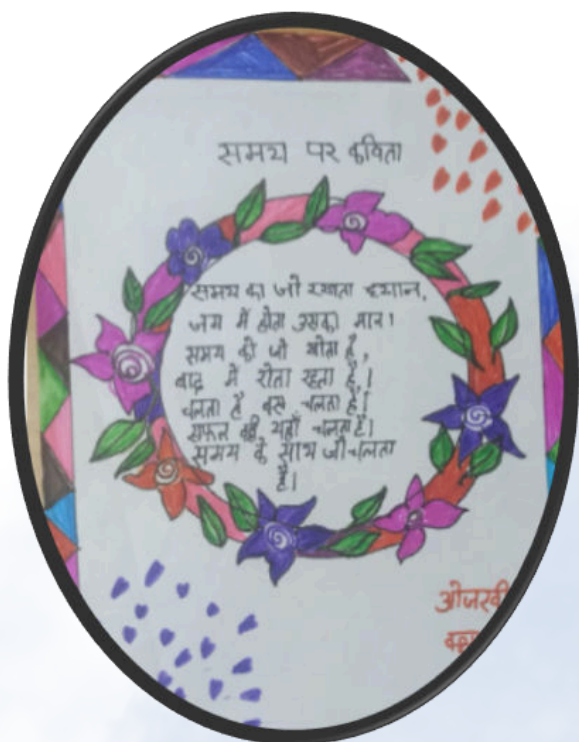 समय पर कविता
समय का जो रखता ध्यान,
जग में होता उसका मान।
समय को जो खोता है,
बाद में रोता रहता है।
चलता है बस चलता है।
सफल वही यहाँ चलता है।
समय के साथ जो चलता
है।
ओजस्वी